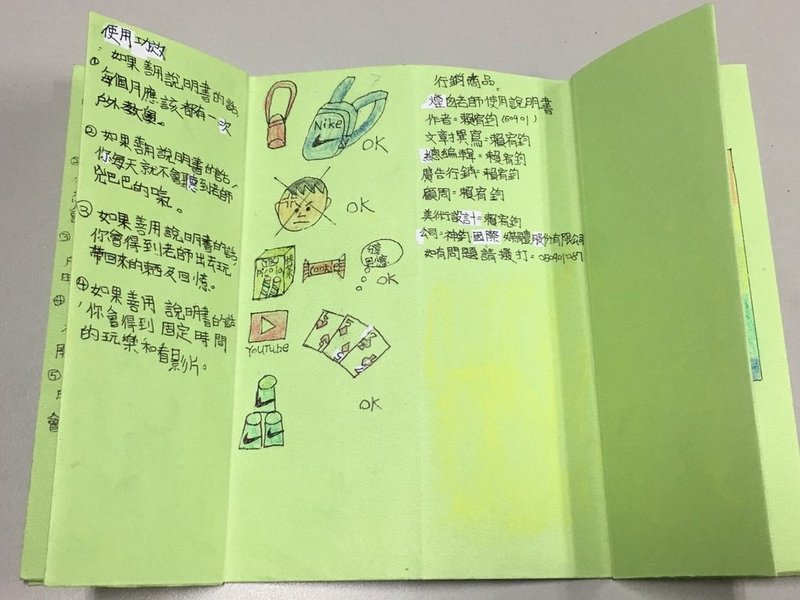 使用功效
① 如果善用說明書的話,
每個月應該都有一次
戶外教學。
② 如果善用說明書的話,
你每天就不會聽到老師
兇巴巴的吼。
③ 如果善用說明書的話,
你會得到老師出去玩
帶回來的東西及回憶。
④ 如果善用 說明書的話
,你會得到固定時間
的玩樂和看影片。
③
④
⑤
會
Nike
OK
OK
OK
YOUTUBE
OK
行銷商品。
煙囪老師使用說明書
作者=賴宥鈞(50901)
文章撰寫=賴宥鈞
總編輯=賴宥鈞
廣告行銷=賴宥鈞
顧問=賴宥鈞
美術設計=賴宥鈞
公司=神鈞國際媒體股份有限公司
如有問題請撥打=